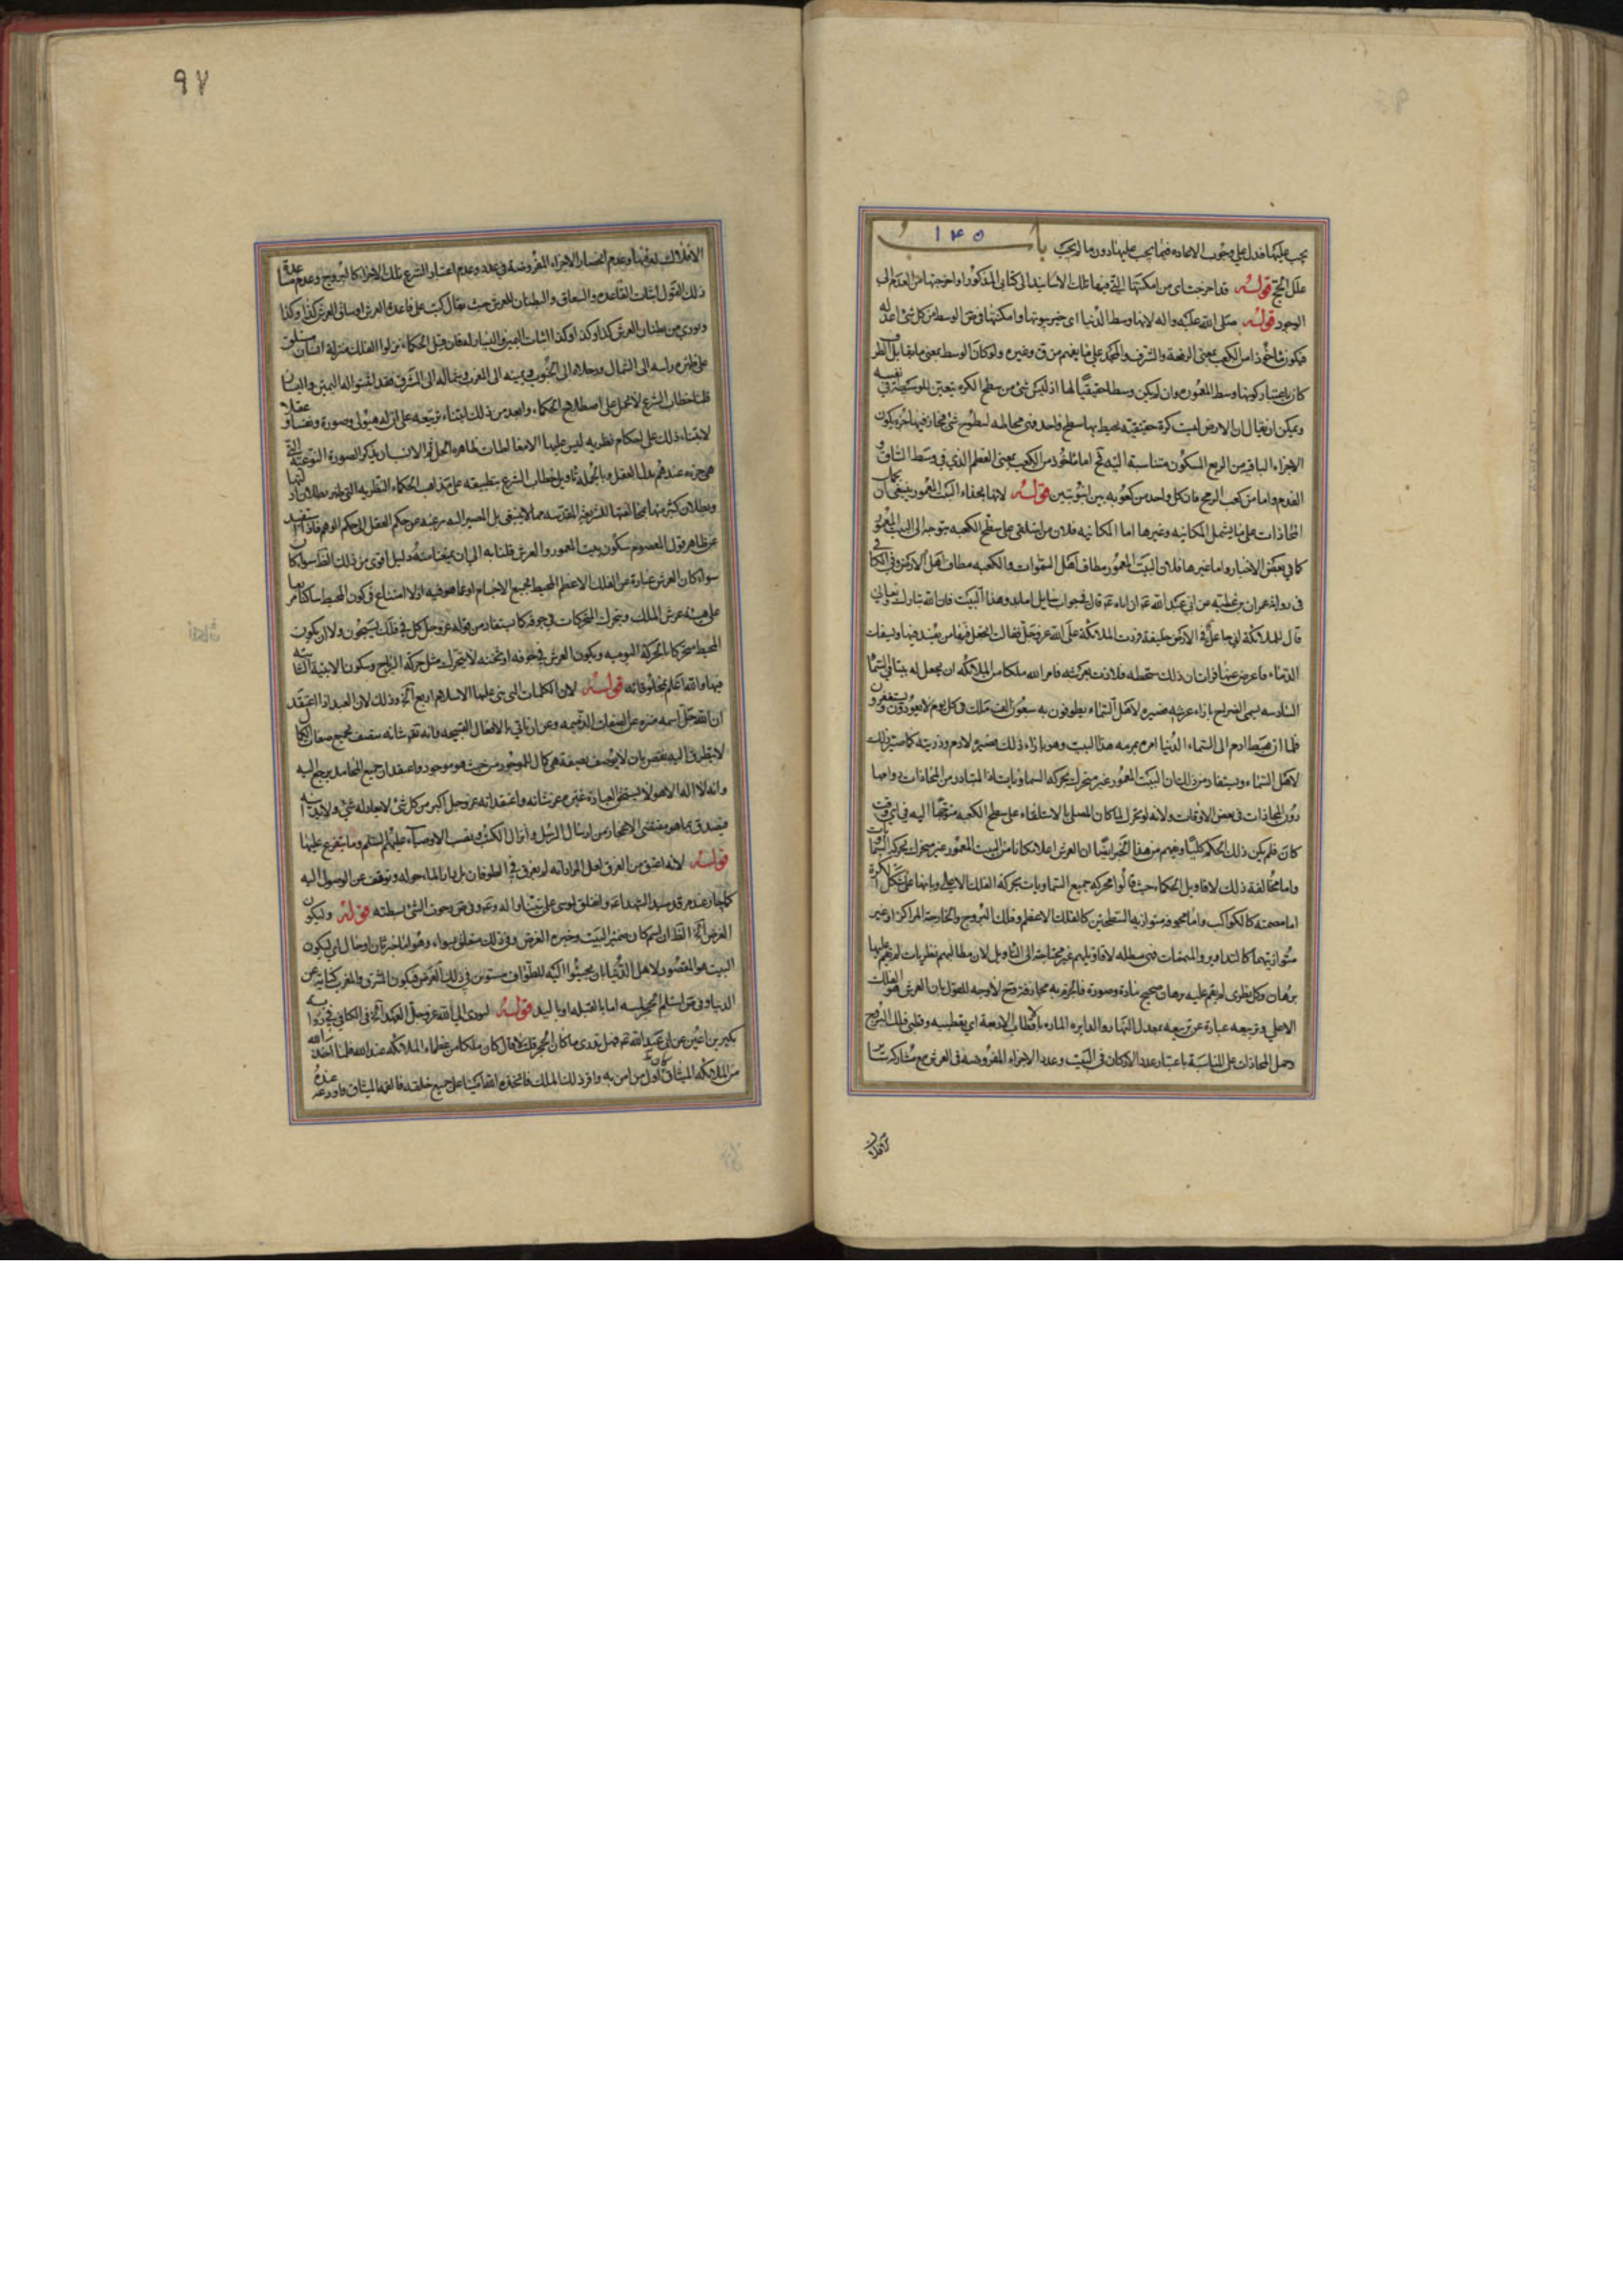 يجب عليها فدل على وجوب الاعاده فيما يجب عليها دون ما لم يجب باب ١٤٥
علل الحج قوله قد اخرجت اى من امكنتها التي فيها تلك الاسانيد الى كتابى المذكور او اخرجتها من العدم الى
الوجود قوله صلى الله عليه واله لانها وسط الدنيا اى خير بيوتها وامكنتها وفى ق الوسط من كل شئ اعدله
فيكون ماخوذا من الكعب بمعنى الرفعة والشرف والمجد على ما يفهم من ق وغيره ولو كان الوسط بمعنى ما يقابل الطرف
كان باعتبار كونها وسط المعموره وان لم يكن وسطا حقيقيا لها اذ ليس شئ من سطح الكره يتعين للوسطية فى نفسه
ويمكن ان يقال ان الارض ليست كرة حقيقية يحيط بها سطح واحد
الاجزاء الباقيه من الربع المسكون متناسبة اليه تح اما ماخوذ من الكعب بمعنى العظم الذي فى وسط الساق و
القدم واما من كعب الرمح فان كل واحد من كعوبه بين انبوبتين قوله لانها بحذاء البيت المعمور ينبغى ان
المحاذات على ما يشمل المكانيه وغيرها اما المكانيه فلان من استلقى على سطح الكعبه متوجه الى البيت المعمور
كما فى بعض الاخبار واما غيرها فلان البيت المعمور مطاف اهل السموات والكعبه مطاف اهل الارض وفى الكافى
فى رواية عمران بن عطيه عن ابي عبد الله ع ان اباه ع قال فى جواب سايل اما بدو هذا البيت فان الله تبارك وتعالى
قال للملائكة اني جاعل فى الارض خليفة فردت الملائكة على الله عز وجل فقالت اتجعل فيها من يفسد فيها ويسفك
الدماء فاعرض عنها فرات ان ذلك من سخطه فلاذت بعرشه فامر الله ملكا من الملائكه ان يجعل له بيتا فى السماء
السادسه يسمى الضراح بازاء عرشه فصيره لاهل السماء يطوفون به سبعون الف ملك فى كل يوم لا يعودون ويستغفرون
فلما ان هبط ادم الى السماء الدنيا امره بمرمه هذا البيت وهو بازاء ذلك فصيره لادم وذريته كما صير ذلك
لاهل السماء ويستفاد من ذلك ان البيت المعمور غير متحرك بحركه السماويات اذ المتبادر من المحاذات دوامها
دون المحاذات فى بعض الاوقات ولانه لو تحرك لما كان المصلى بالاستلقاء على سطح الكعبه متوجها اليه فى اى وقت
كان فلم يكن ذلك الحكم كليا وفهم من هذا الخبر ايضا ان العرش اعلا مكانا من البيت المعمور غير متحرك بحركة السماويات
واما مخالفة ذلك لاقاويل الحكماء حيث قالوا بحركه جميع السماويات بحركة الفلك الاعظم وبانها على شكل الكرة
اما مصمته كالكواكب واما مجوفه متوازيه السطحين كالفلك الاعظم وفلك البروج والخارجة المراكز او غير
متوازيتهما كالتداوير والمتممات فهى مبطله لاقاويلهم غير محتاجة الى التاويل لان مطالبهم نظريات لم يقم عليها
برهان وكل نظرى لم يقم عليه برهان صحيح مادة وصورة فالجزم به مجازفه وتح لا وجه للقول بان العرش هو الفلك
الاعلى وتربيعه عبارة عن تربيعه بمعدل النهار والدايره الماره بالاقطاب الاربعة اى بقطبيه وقطبى فلك البروج
وحمل المحاذات على المناسبة باعتبار عدد الاركان فى البيت وعدد الاجزاء المفروضه فى العرش مع مشاركة سائر
الافلاك
٩٧
الافلاك له فيها وعدم انحصار الاجزاء المفروضة فى عدد وعدم اعتبار الشرع تلك الاجزاء كالبروج وعدم مساعدة
ذلك القول اثبات القاعده والساق والبطنان للعرش حيث يقال كتب على قاعدة العرش او ساق العرش كذا وكذا
ونودي من بطنان العرش كذا وكذا وكذا اثبات اليمين واليسار له فان قيل الحكماء نزلوا الفلك منزلة انسان مستلق
على ظهره راسه الى الشمال ورجلاه الى الجنوب ويمينه الى الغرب وشماله الى الشرق فقد اثبتوا له اليمين واليسار
قلنا خطاب الشرع لا يحمل على اصطلاح الحكماء وابعد من ذلك ابتناء تربيعه على ان له هيولى وصورة ونفسا وعقلا
لابتناء ذلك على احكام نظريه ليس عليها الا مغالطات ظاهره الخلل
هى جزءه عندهم بدل العقل وبالجملة تاويل خطاب الشرع بتطبيقه على مذاهب الحكماء النظريه التى ظهر بطلان ادلتها
وبطلان كثير منها بمخالفتها للشريعة المقدسه مما لا ينبغى بل المصير اليه رغبه عن حكم العقل الى حكم الوهم فاذا استفيد
من ظاهر قول المعصوم سكون بيت المعمور والعرش قلنا به الى ان يمنعنا منه دليل اقوى من ذلك الظ سواء كان
سواء كان العرش عبارة عن الفلك الاعظم المحيط بجميع الاجسام او عما هو فيه اذ لا امتناع فى كون المحيط ساكنا
على هيئه عرش الملك ويتحرك المتحركات فى جوفه كما يستفاد من قوله عز وجل كل في فلك يسبحون ولا ان يكون
المحيط متحركا بالحركة اليوميه ويكون العرش في جوفه او ثخنه لا يتحرك مثل حركة الرياح وسكون الابنية الثابته
فيها والله اعلم بمخلوقاته قوله لان الكلمات التى بنى عليها الاسلام اربع آخ وذلك لان العبد اذا اعتقد
ان الله جل اسمه منزه عن الصفات الذميمه وعن ان ياتي بالافعال القبيحه وانه تقدس شانه متصف بجميع صفات الكمال
لا يتطرق اليه نقص بان لا يوصف بصفة هى كمال للموجود من حيث هو موجود واعتقد ان جميع المحامد يرجع اليه
وانه لا اله الا هو لا يستحق العبادة غيره عز شانه واعتقد انه عز وجل اكبر من كل شئ لا يعادله شئ ولا يدانيه
فيصدق بما هو مقتضى الاعتقاد من ارسال الرسل وانزال الكتب ونصب الاوصياء عليهم السلام وما يتفرع عليها
قوله لانه اعتق من الغرق لعل المراد انه لم يغرق فى الطوفان بل دار الماء حوله وتوقف عن الوصول اليه
قوله وليكون
الغرض آخ الظ ان اسم كان ضمير البيت وخبره الغرض وفى ذلك متعلق بسواء وهو اما خبر ثان او حال اى ليكون
البيت هو المقصود لاهل الدنيا بان يجيئوا اليه للطواف مستوين فى ذلك الغرض فيكون الشرق والغرب كناية عن
الدنيا وفى ق استلم الحجر لمسه اما بالقبله او باليد قوله ليودى الى الله عز وجل العهد آخ فى الكافى فى رواية
بكير بن اعين عن ابى عبد الله ع فهل تدرى ما كان الحجر قلت لا قال كان ملكا من عظماء الملائكه عند الله فلما اخذ الله
من الملائكه الميثاق كان اول من امن به واقر ذلك الملك فاتخذه الله امينا على جميع خلقه فالقمه الميثاق واودعه عنده